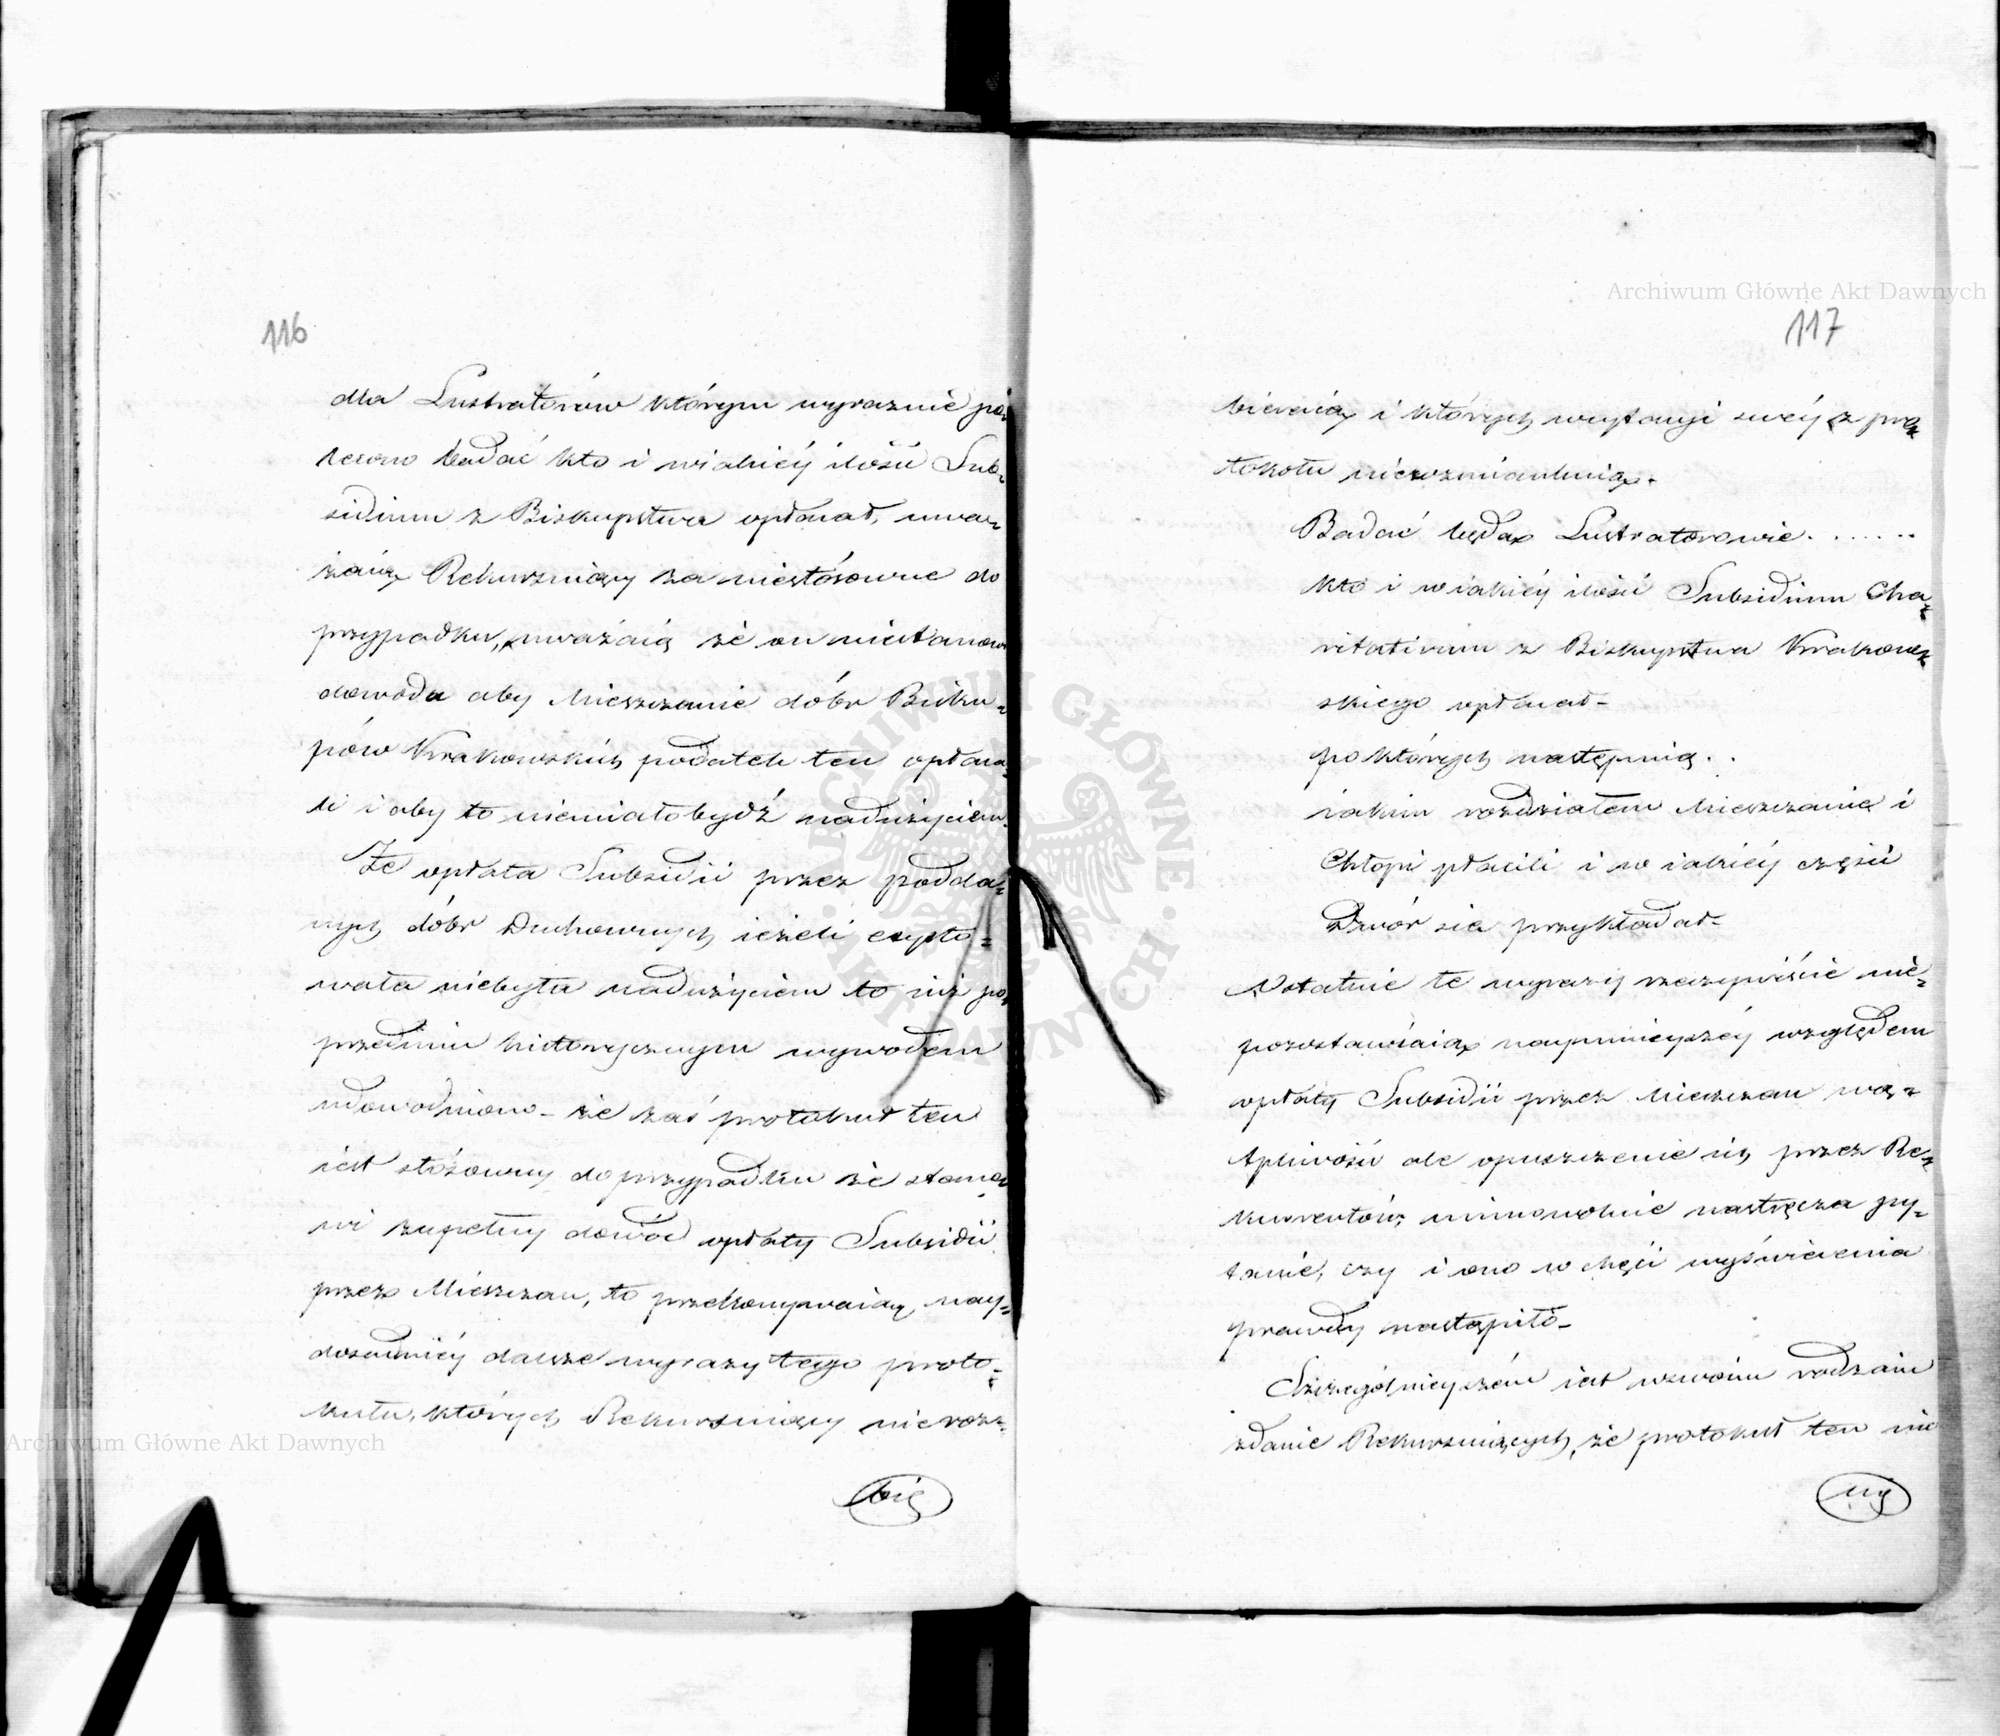 116
dla Lustratorów którym wyraznie po=
lecono badać kto i wiakiéy ilości Sub=
sidium z Biskupstwa opłacał, uwa=
żaią Rekursuiący za niestósowne do
przypadku, uważaią że on niestanowi
dowodu aby Mieszczanie dóbr Bisku=
pów Krakowskich podatek ten opłaca=
li i aby to niemiało bydź nadużyciem.
Że opłata Subsidii przez podda=
nych dóbr Duchownych ieżeli exysto=
wała niebyła nadużyciem to iuż po=
przednim historycznym wywodem
udowodniono – że zaś protokuł ten
iest stósowny do przypadku że stano=
wi zupełny dowód opłaty Subsidii
przez Mieszczan, to przekonywaią nay=
dosadniéy dalsze wyrazy tego proto=
kułu, których Rekursuiący nie roz=
bie
Archiwum Główne Akt Dawnych
117
bieraią i których wcytacyi swéy z pro=
tokołu niewzmiankuią.
Badać będą Lustratorowie . . . . . .
kto i w iakiéy ilości Subsidium Cha=
ritativum z Biskupstwa Krakow=
skiego opłacał –
po których następuią . .
iakim rozdziałem Mieszczanie i
Chłopi płacili i w iakiéy części
Dwór sie przykładał –
Ostatnie te wyrazy rzeczywiście nie=
pozostawiaią naymnieyszéy względem
opłaty Subsidii przez Mieszczan wą=
tpliwości ale opuszczenie ich przez Re=
kurentów, mimowolnie nastręcza py=
tanie, czy i ono w chęci wyświecenia
prawdy nastąpiło –
Szczególnieyszém iest wswoim rodzaiu
zdanie Rekursuiących, że protokuł ten nie
Archiwum Główne Akt Dawnych
ARCHIWUM GŁÓWNE AKT DAWNYCH